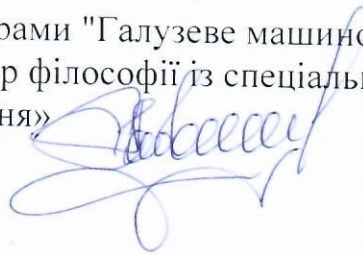 рами "Галузеве машино
р філософії із спеціаль
ня»